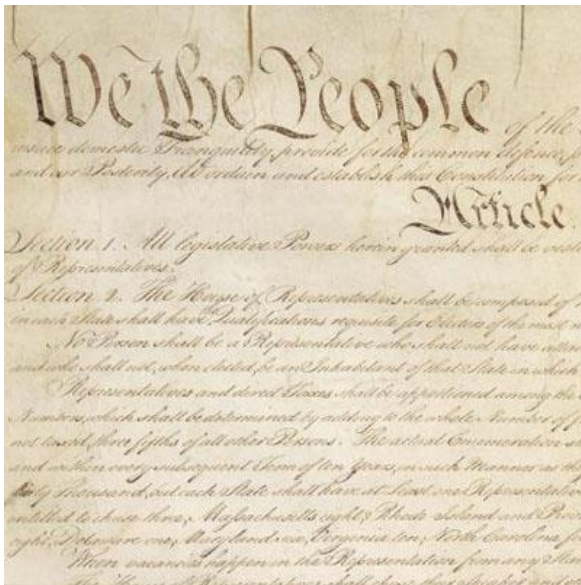 We the People of the
insure domestic Tranquility, provide for the common defence,
and our Posterity, do ordain and establish this Constitution for
Article.
Section. 1. All legislative Powers herein granted shall be vest
of Representatives.
Section. 2. The House of Representatives shall be composed of
in each State shall have Qualifications requisite for Electors of the most
No Person shall be a Representative who shall not have attain
and who shall not, when elected, be an Inhabitant of that State in which
Representatives and direct Taxes shall be apportioned among the
Numbers, which shall be determined by adding to the whole Number of
not taxed, three fifths of all other Persons. The actual Enumeration
and within every subsequent Term of ten Years, in such Manner as the
thirty Thousand, but each State shall have at Least one Representative
entitled to chuse three, Massachusetts eight, Rhode Island and Prov
eight, Delaware one, Maryland six, Virginia ten, North Carolina
When vacancies happen in the Representation from any
the House of Representatives shall chuse their